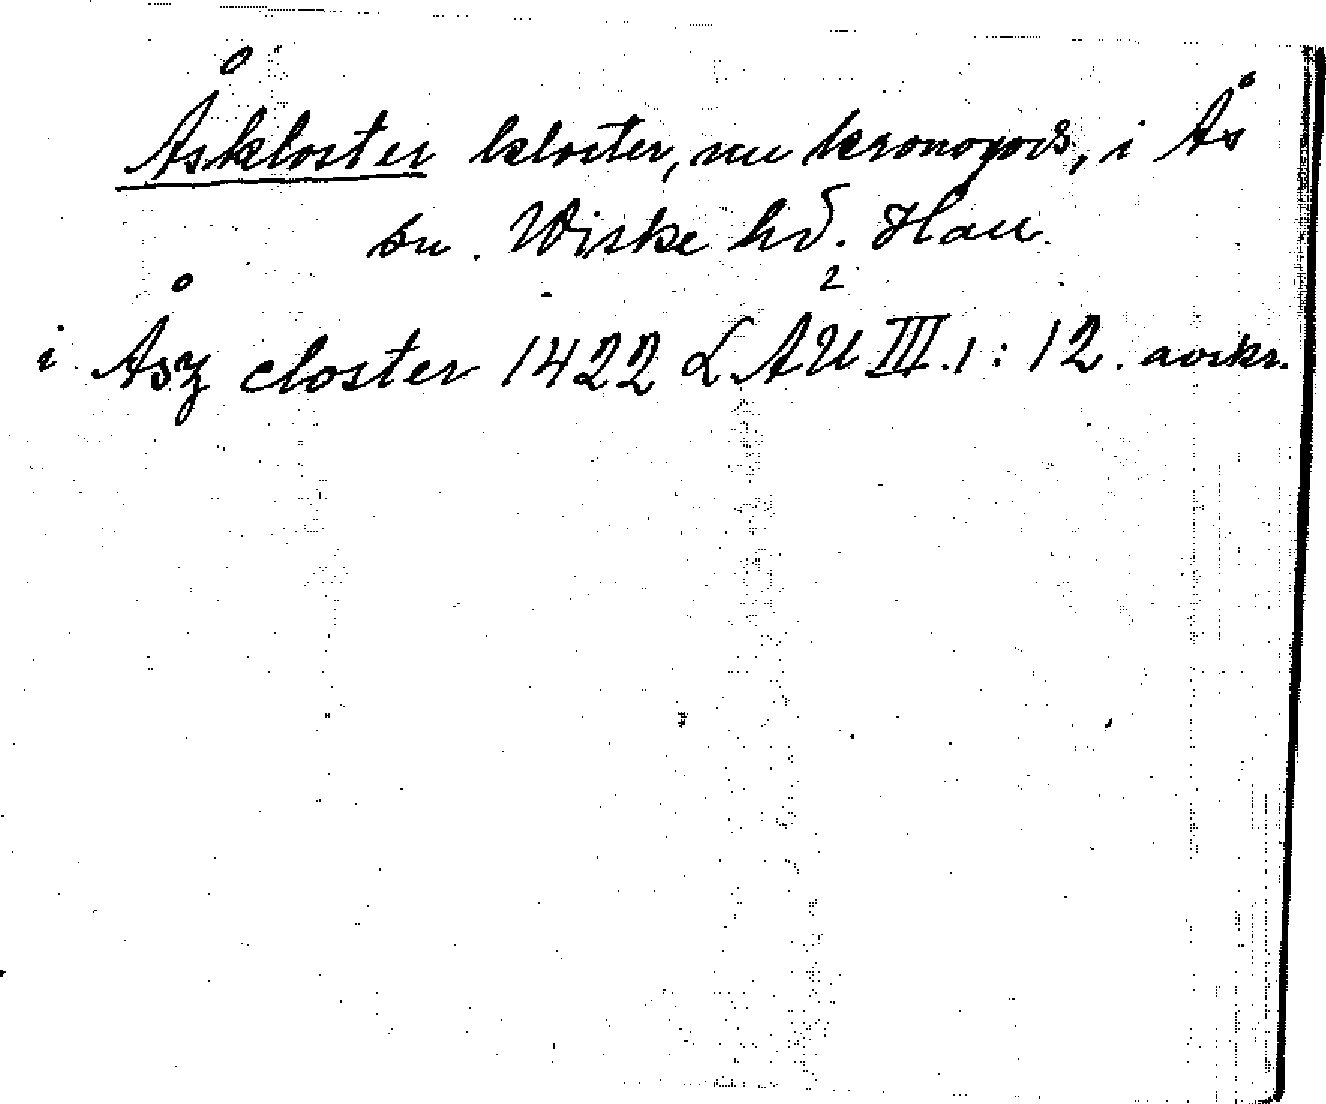 Åskloster kloster, nu kronogods, i Ås
sn. Wiske hd. Hall.
i Åsz closter 1422 2 LAU III.1:12. avskr.